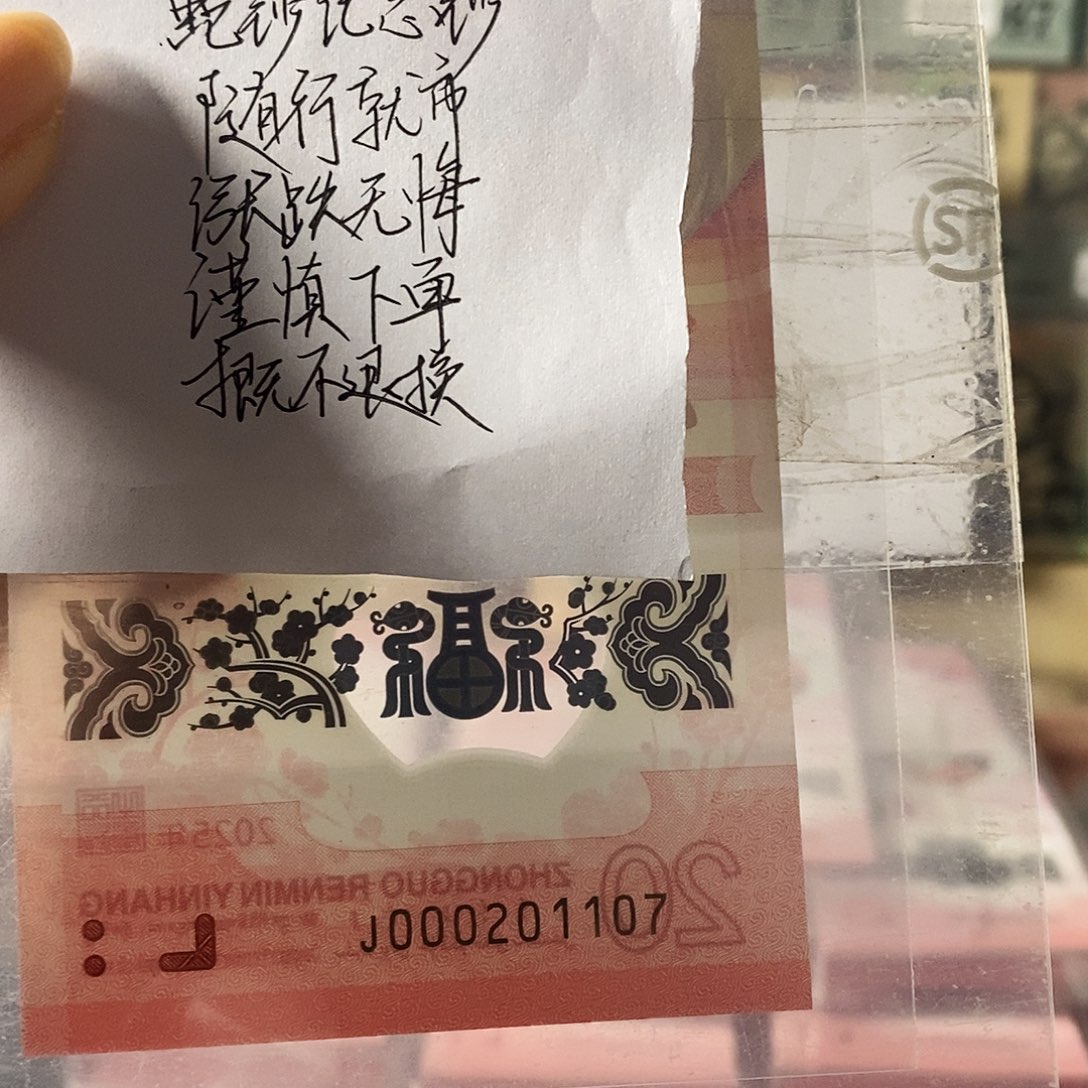 蛇钞纪念钞
随行就市
涨跌无悔
谨慎下单
概不退换
ST
福
2025年
ZHONGGUO RENMIN YINHANG
20
J000201107